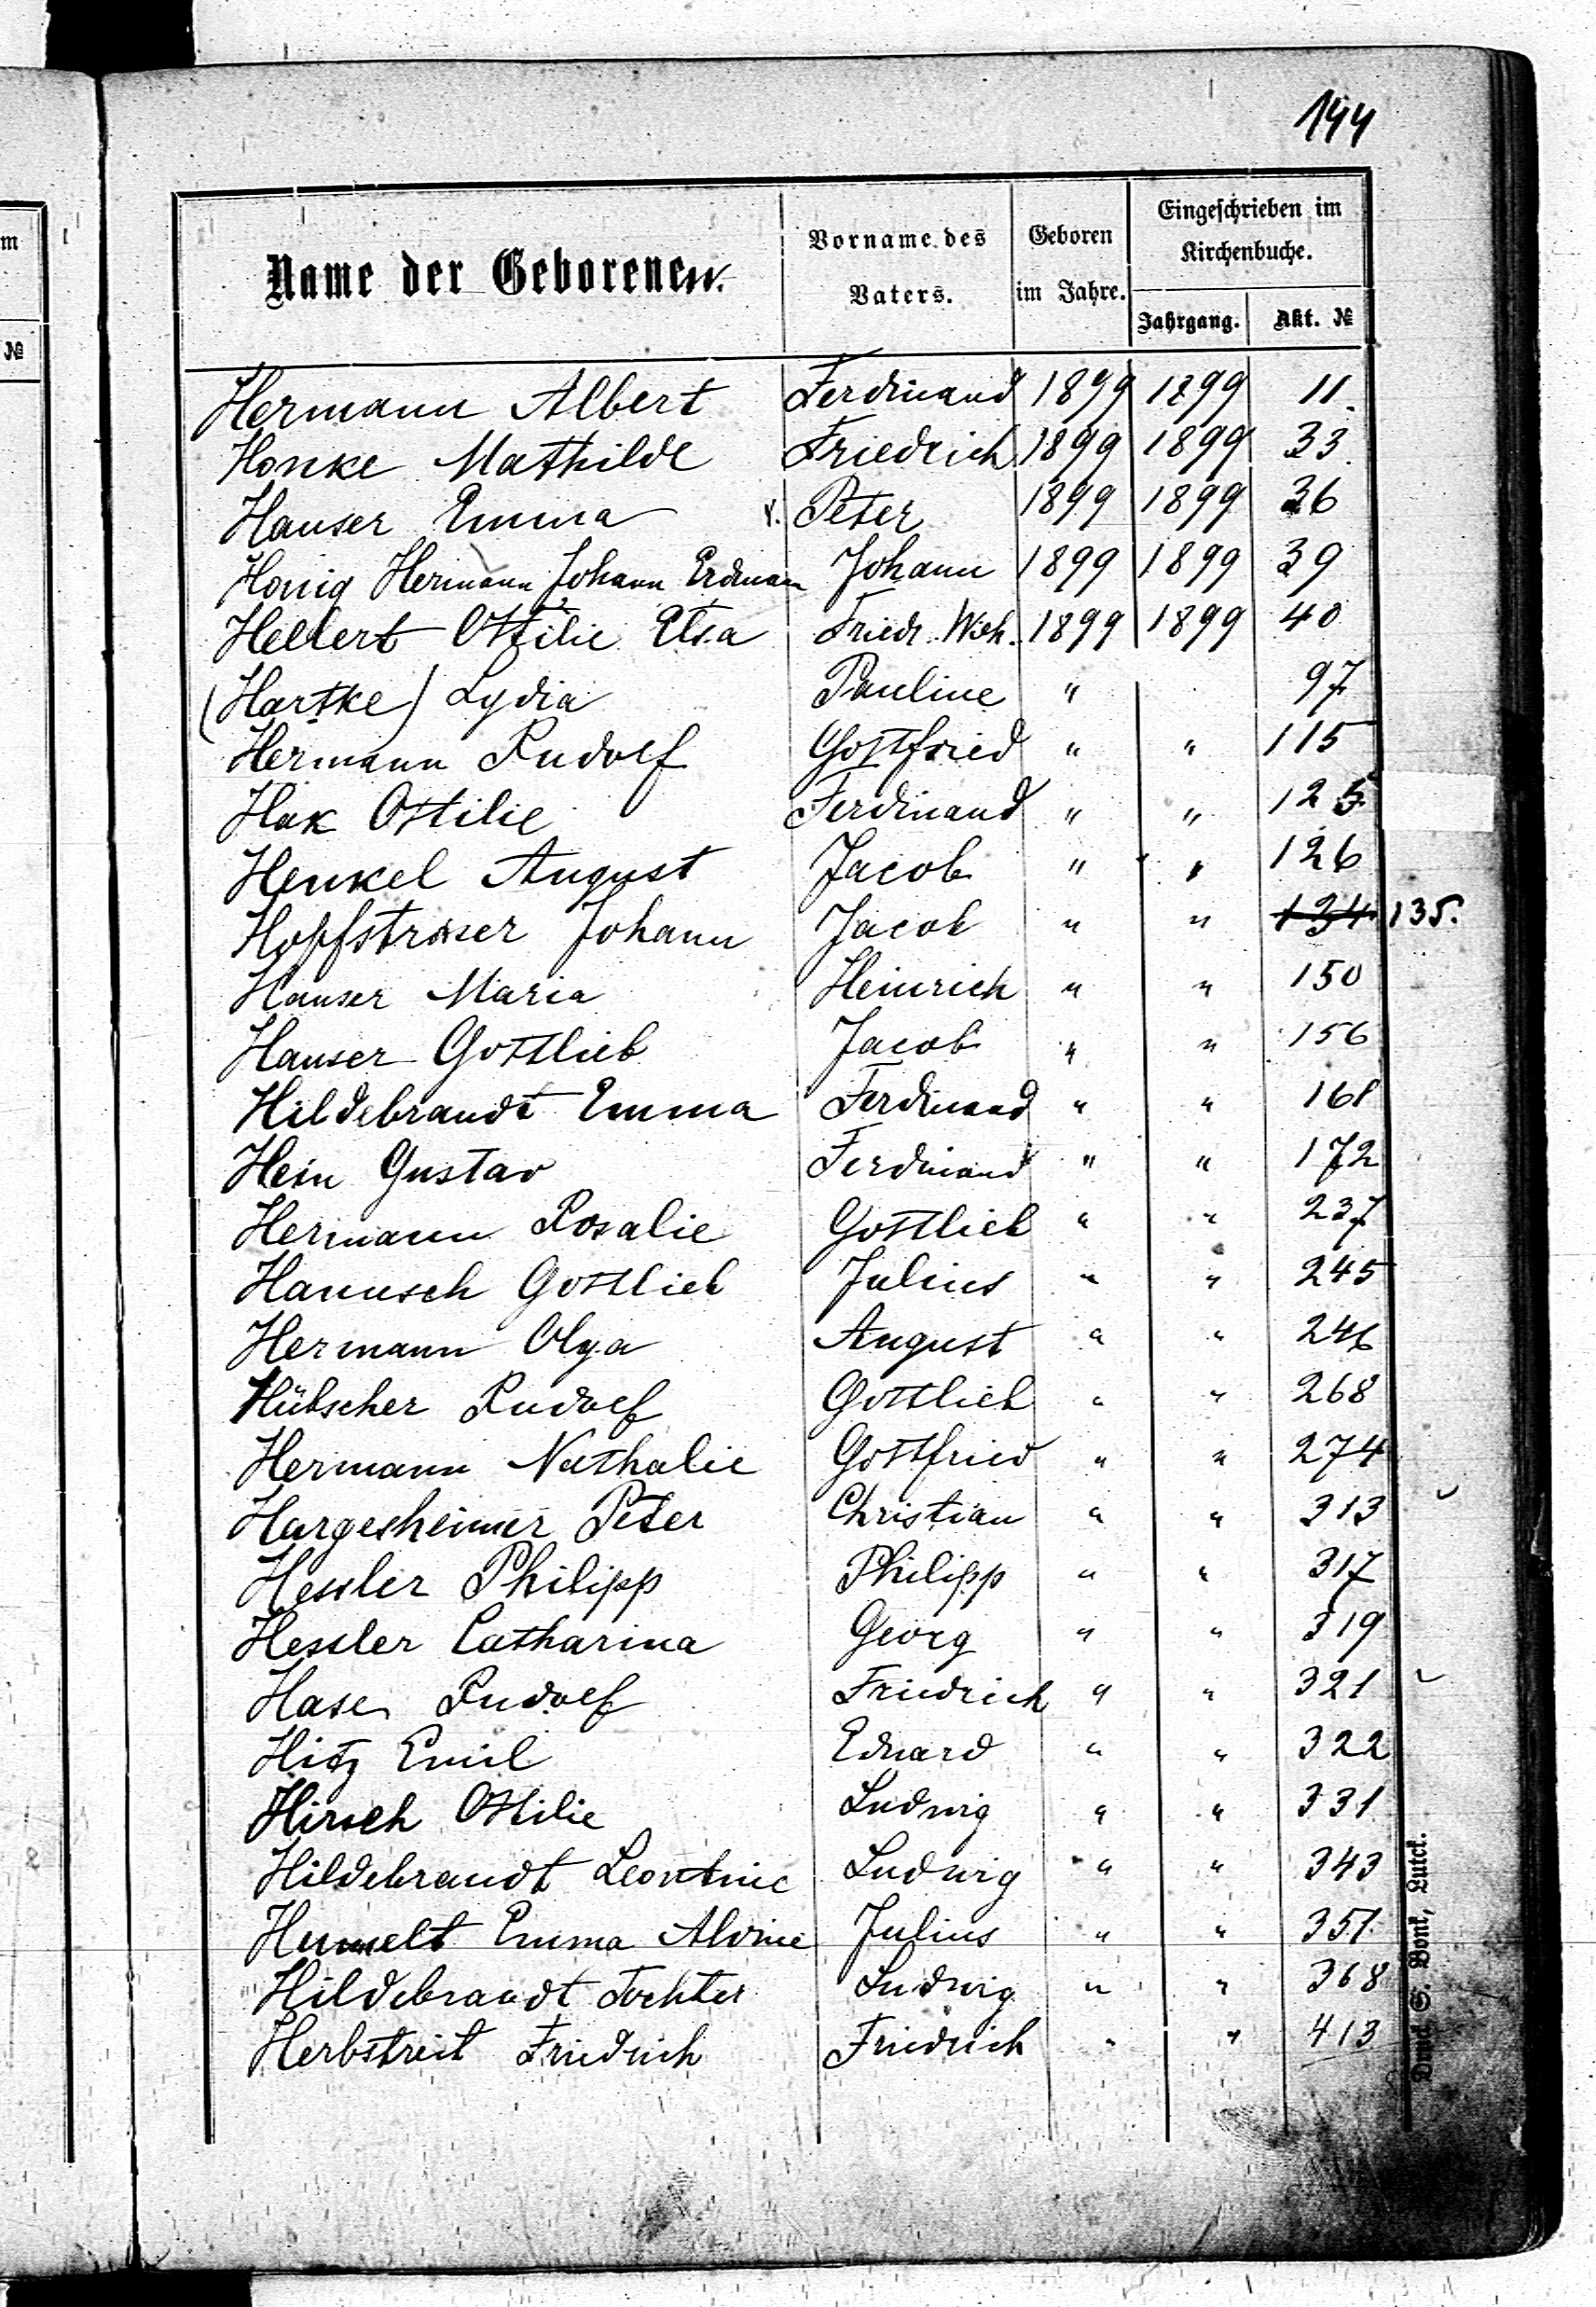 144
m
№
Name der Geborenen.
Vorname des Vaters.
Geboren im Jahre.
Eingeschrieben im Kirchenbuche.
Jahrgang.
Akt. №
Hermann Albert Ferdinand 1899 1899 11.
Honke Mathilde Friedrich 1899 1899 33
Hauser Emma Peter 1899 1899 36
Honig Hermann Johann Erdman Johann 1899 1899 39
Hellert Ottilie Elsa Friedr. 1899 1899 40
(Hartke) Lydia Pauline " 97
Hermann Rudolf Gottfried " " 115
Hak Ottilie Ferdinand " " 125
Henkel August Jacob " " 126
Johann Jacob " " 134 135.
Hauser Maria Heinrich " " 150
Hauser Gottlieb Jacob " " 156
Hildebrandt Emma Ferdinand " " 168
Hein Gustav Ferdinand " " 172
Hermann Rosalie Gottlieb " " 237
Hanusch Gottlieb Julius " " 245
Hermann Olga August " " 246
Hübscher Rudolf Gottlieb " " 268
Hermann Nathalie Gottfried " " 274
Hargesheimer Peter Christian " " 313
Hessler Philipp Philipp " " 317
Hessler Catharina Georg " " 319
Hase Rudolf Friedrich " " 321
Hitz Emil Eduard " " 322
Hirsch Ottilie Ludwig " " 331
Hildebrandt Leontine Ludwig " " 343
Humelt Emma Alvine Julius " " 351
Hildebrandt Tochter Ludwig " " 368
Herbstreit Friedrich Friedrich " " 413
Druck S. Bonk, Lutck.